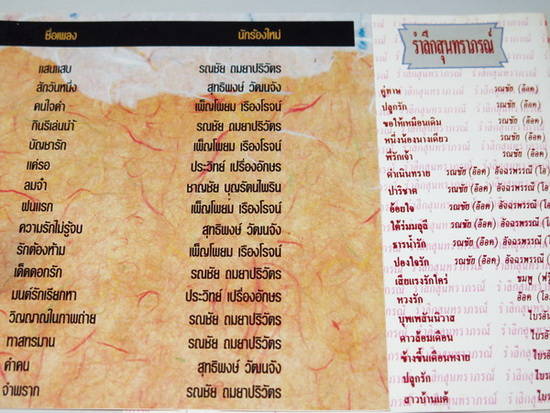 ชื่อเพลง นักร้องใหม่
แสนแสบ รณชัย ถมยาปริวัตร
สักวันหนึ่ง สุทธิพงษ์ วัฒนจัง
คนใจดำ เพ็ญโพยม เรืองโรจน์
กินรีเล่นน้ำ รณชัย ถมยาปริวัตร
บัญชารัก เพ็ญโพยม เรืองโรจน์
แด่รอ ประวิทย์ เปรื่องอักษร
ลมจ๋า ชาญชัย บุญรัตนไพริน
ฝนแรก เพ็ญโพยม เรืองโรจน์
ความรักไม่รู้จบ สุทธิพงษ์ วัฒนจัง
รักต้องห้าม เพ็ญโพยม เรืองโรจน์
เด็ดดอกรัก รณชัย ถมยาปริวัตร
มนต์รักเรียกหา ประวิทย์ เปรื่องอักษร
วิญญาณในภาพถ่าย รณชัย ถมยาปริวัตร
ทาสทรมาน รณชัย ถมยาปริวัตร
คำคน สุทธิพงษ์ วัฒนจัง
จำพราก รณชัย ถมยาปริวัตร
รำลึกสุนทราภรณ์
คู่ทาษ รณชัย (อ๊อด)
ปลูกรัก รณชัย (อ๊อด)
ขอให้เหมือนเดิม รณชัย (อ๊อด)
หนึ่งน้องนางเดียว รณชัย (อ๊อด)
พี่รักเจ้า รณชัย (อ๊อด)
ดำเนินทราย รณชัย (อ๊อด) อัจฉรพรรณี (โอ
ปาริชาต รณชัย (อ๊อด) อัจฉรพรรณี (โอ
อ้อยใจ รณชัย (อ๊อด) อัจฉรพรรณี (โอ
ใต้ร่มมลุลี รณชัย (อ๊อด) อัจฉรพรรณี (โอ
ธารน้ำรัก รณชัย (อ๊อด) อัจฉรพรรณี (โอ
ปองใจรัก รณชัย (อ๊อด) อัจฉรพรรณี (โอ
เสียแรงรักใคร่ ชมพู (ฟรุ
หวงรัก อ๊อด (โอ
บุพเพสันนิวาส
ดาวล้อมเดือน ไบรอั
ข้างขึ้นเดือนหงาย ไบรอั
ปลูกรัก ไบรอั
สาวบ้านแต้ ไบรอั